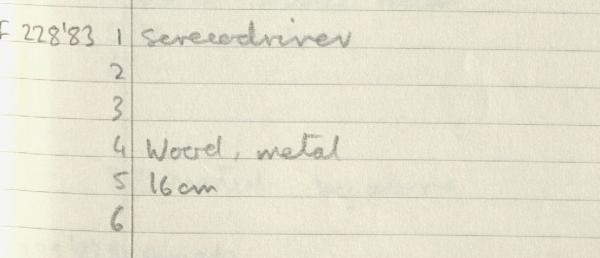 F 228'83 1 Screwdriver
2
3
4 Wood, metal
5 16cm
6